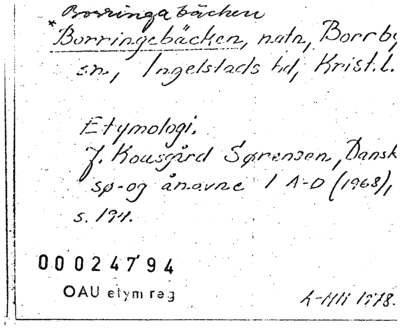 Borringabäcken
*Borringebäcken, natn, Borrby
sn, Ingelstads hd, Krist. l.
Etymologi.
J. Kousgård Sørensen, Dansk
sø- og ånavne 1 A-D (1968),
s. 194.
00024794
OAU etym reg
1978.